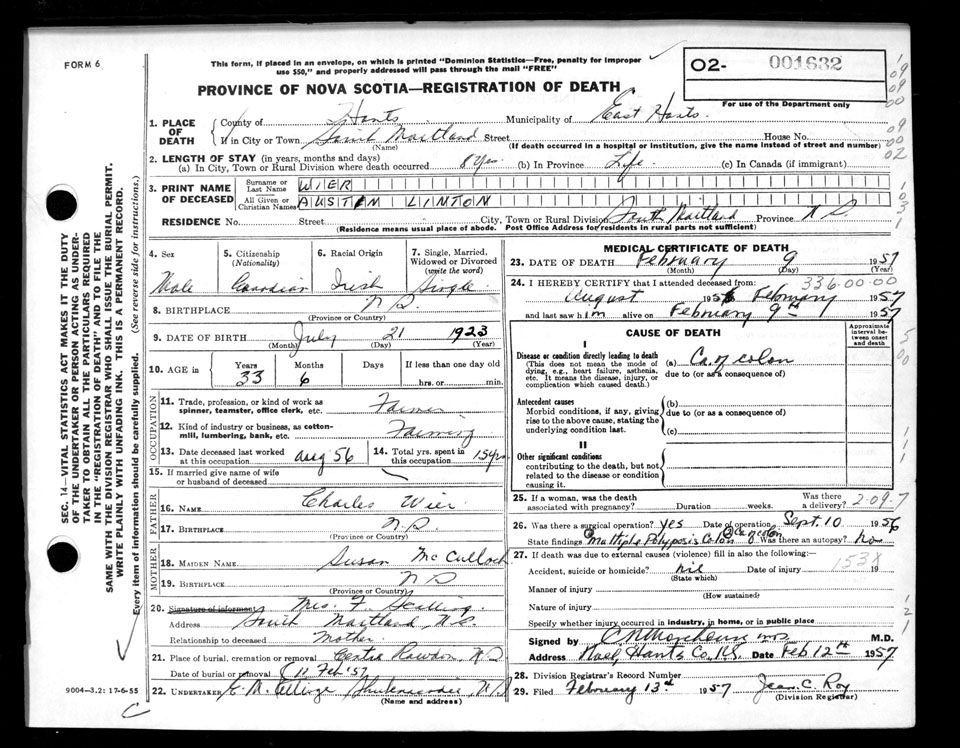 FORM 6
This form, if placed in an envelope, on which is printed "Dominion Statistics—Free, penalty for improper
use $50," and properly addressed will pass through the mail "FREE"
02- 001632
For use of the Department only
PROVINCE OF NOVA SCOTIA—REGISTRATION OF DEATH
1. PLACE OF DEATH
County of Hants Municipality of East Hants
If in City or Town South Maitland Street House No.
(Name) (If death occurred in a hospital or institution, give the name instead of street and number)
2. LENGTH OF STAY (in years, months and days)
(a) In City, Town or Rural Division where death occurred 8 yrs. (b) In Province Life (c) In Canada (if immigrant)
3. PRINT NAME OF DECEASED
Surname or Last Name WIER
All Given or Christian Names AUSTEN LINTON
RESIDENCE No. Street City, Town or Rural Division South Maitland Province N.S.
(Residence means usual place of abode. Post Office Address for residents in rural parts not sufficient)
4. Sex
Male
5. Citizenship
(Nationality)
Canadian
6. Racial Origin
Irish
7. Single, Married,
Widowed or Divorced
(write the word)
Single
8. BIRTHPLACE N.S.
(Province or Country)
9. DATE OF BIRTH July 21 1923
(Month) (Day) (Year)
10. AGE in
Years Months Days If less than one day old
33 6 hrs. or min.
OCCUPATION
11. Trade, profession, or kind of work as
spinner, teamster, office clerk, etc. Farmer
12. Kind of industry or business, as cotton-
mill, lumbering, bank, etc. Farming
13. Date deceased last worked
at this occupation Aug 56
14. Total yrs. spent in
this occupation 15 yrs
15. If married give name of wife
or husband of deceased
FATHER
16. NAME Charles Wier
17. BIRTHPLACE N.S.
(Province or Country)
MOTHER
18. MAIDEN NAME Susan McCulloch
19. BIRTHPLACE N S
(Province or Country)
20. Signature of informant Mrs. F.
Address South Maitland, N.S.
Relationship to deceased Mother
21. Place of burial, cremation or removal Centre Rawdon, N S
Date of burial or removal 11 Feb '57
22. UNDERTAKER E. M. Shubenacadie, N S
(Name and address)
MEDICAL CERTIFICATE OF DEATH
23. DATE OF DEATH February 9 1957
(Month) (Day) (Year)
336.00.00
24. I HEREBY CERTIFY that I attended deceased from:
August 1956 February 1957
and last saw him alive on February 9th 1957
CAUSE OF DEATH
Approximate interval between onset and death
I
Disease or condition directly leading to death
(This does not mean the mode of
dying, e.g., heart failure, asthenia,
etc. It means the disease, injury, or
complication which caused death.)
(a) Ca. of colon
due to (or as a consequence of)
Antecedent causes
Morbid conditions, if any, giving
rise to the above cause, stating the
underlying condition last.
(b)
due to (or as a consequence of)
(c)
II
Other significant conditions
contributing to the death, but not
related to the disease or condition
causing it.
25. If a woman, was the death
associated with pregnancy? Duration weeks. Was there a delivery? 2.09.7
26. Was there a surgical operation? Yes Date of operation Sept. 10 1956
State findings ① Multiple Polyposis Colon ② Ca of colon Was there an autopsy? No
27. If death was due to external causes (violence) fill in also the following:
Accident, suicide or homicide? nil Date of injury 19
(State which)
1538
Manner of injury
(How sustained)
Nature of injury
Specify whether injury occurred in industry, in home, or in public place
Signed by M.D.
Address Noel, Hants Co., N.S. Date Feb 12th 1957
28. Division Registrar's Record Number
29. Filed February 13th 1957 Jean C. Roy
(Division Registrar)
SEC. 14—VITAL STATISTICS ACT MAKES IT THE DUTY
OF THE UNDERTAKER OR PERSON ACTING AS UNDER-
TAKER TO OBTAIN ALL THE PARTICULARS REQUIRED
IN THE "REGISTRATION OF DEATH" AND TO FILE THE
SAME WITH THE DIVISION REGISTRAR WHO SHALL ISSUE THE BURIAL PERMIT.
WRITE PLAINLY WITH UNFADING INK. THIS IS A PERMANENT RECORD.
Every item of information should be carefully supplied. (See reverse side for instructions.)
9004-3,2: 17-6-55
C